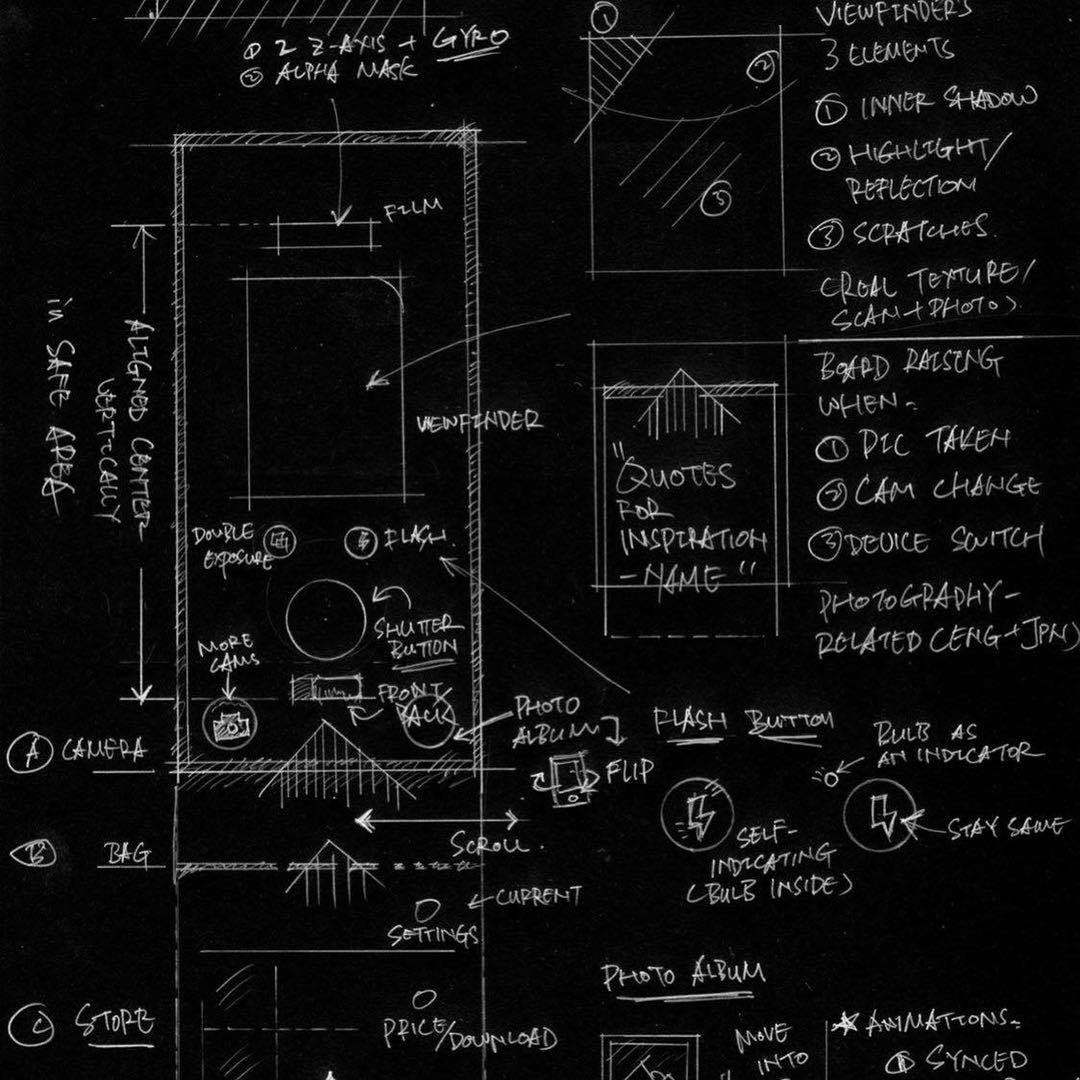 ① 2 Z-AXIS + GYRO
② ALPHA MASK
FILM
ALIGNED CENTER
VERTICALLY
in SAFE AREA
VIEWFINDER
DOUBLE
EXPOSURE
FLASH.
SHUTTER
BUTTON
MORE
CAMS
FRONT
BACK
PHOTO
ALBUM
FLIP
Ⓐ CAMERA
SCROLL.
Ⓑ BAG
CURRENT
SETTINGS
Ⓒ STORE
PRICE/DOWNLOAD
①
②
③
VIEWFINDERS
3 ELEMENTS
① INNER SHADOW
② HIGHLIGHT/
REFLECTION
③ SCRATCHES.
(REAL TEXTURE/
SCAN+PHOTO).
"QUOTES
FOR
INSPIRATION
-NAME"
BOARD RAISING
WHEN-
① PIC TAKEN
② CAM CHANGE
③ DEVICE SWITCH
PHOTOGRAPHY-
RELATED (ENG+JPN)
FLASH BUTTON
BULB AS
AN INDICATOR
SELF-
INDICATING
(BULB INSIDE)
STAY SAME
PHOTO ALBUM
MOVE
INTO
* ANIMATIONS-
① SYNCED